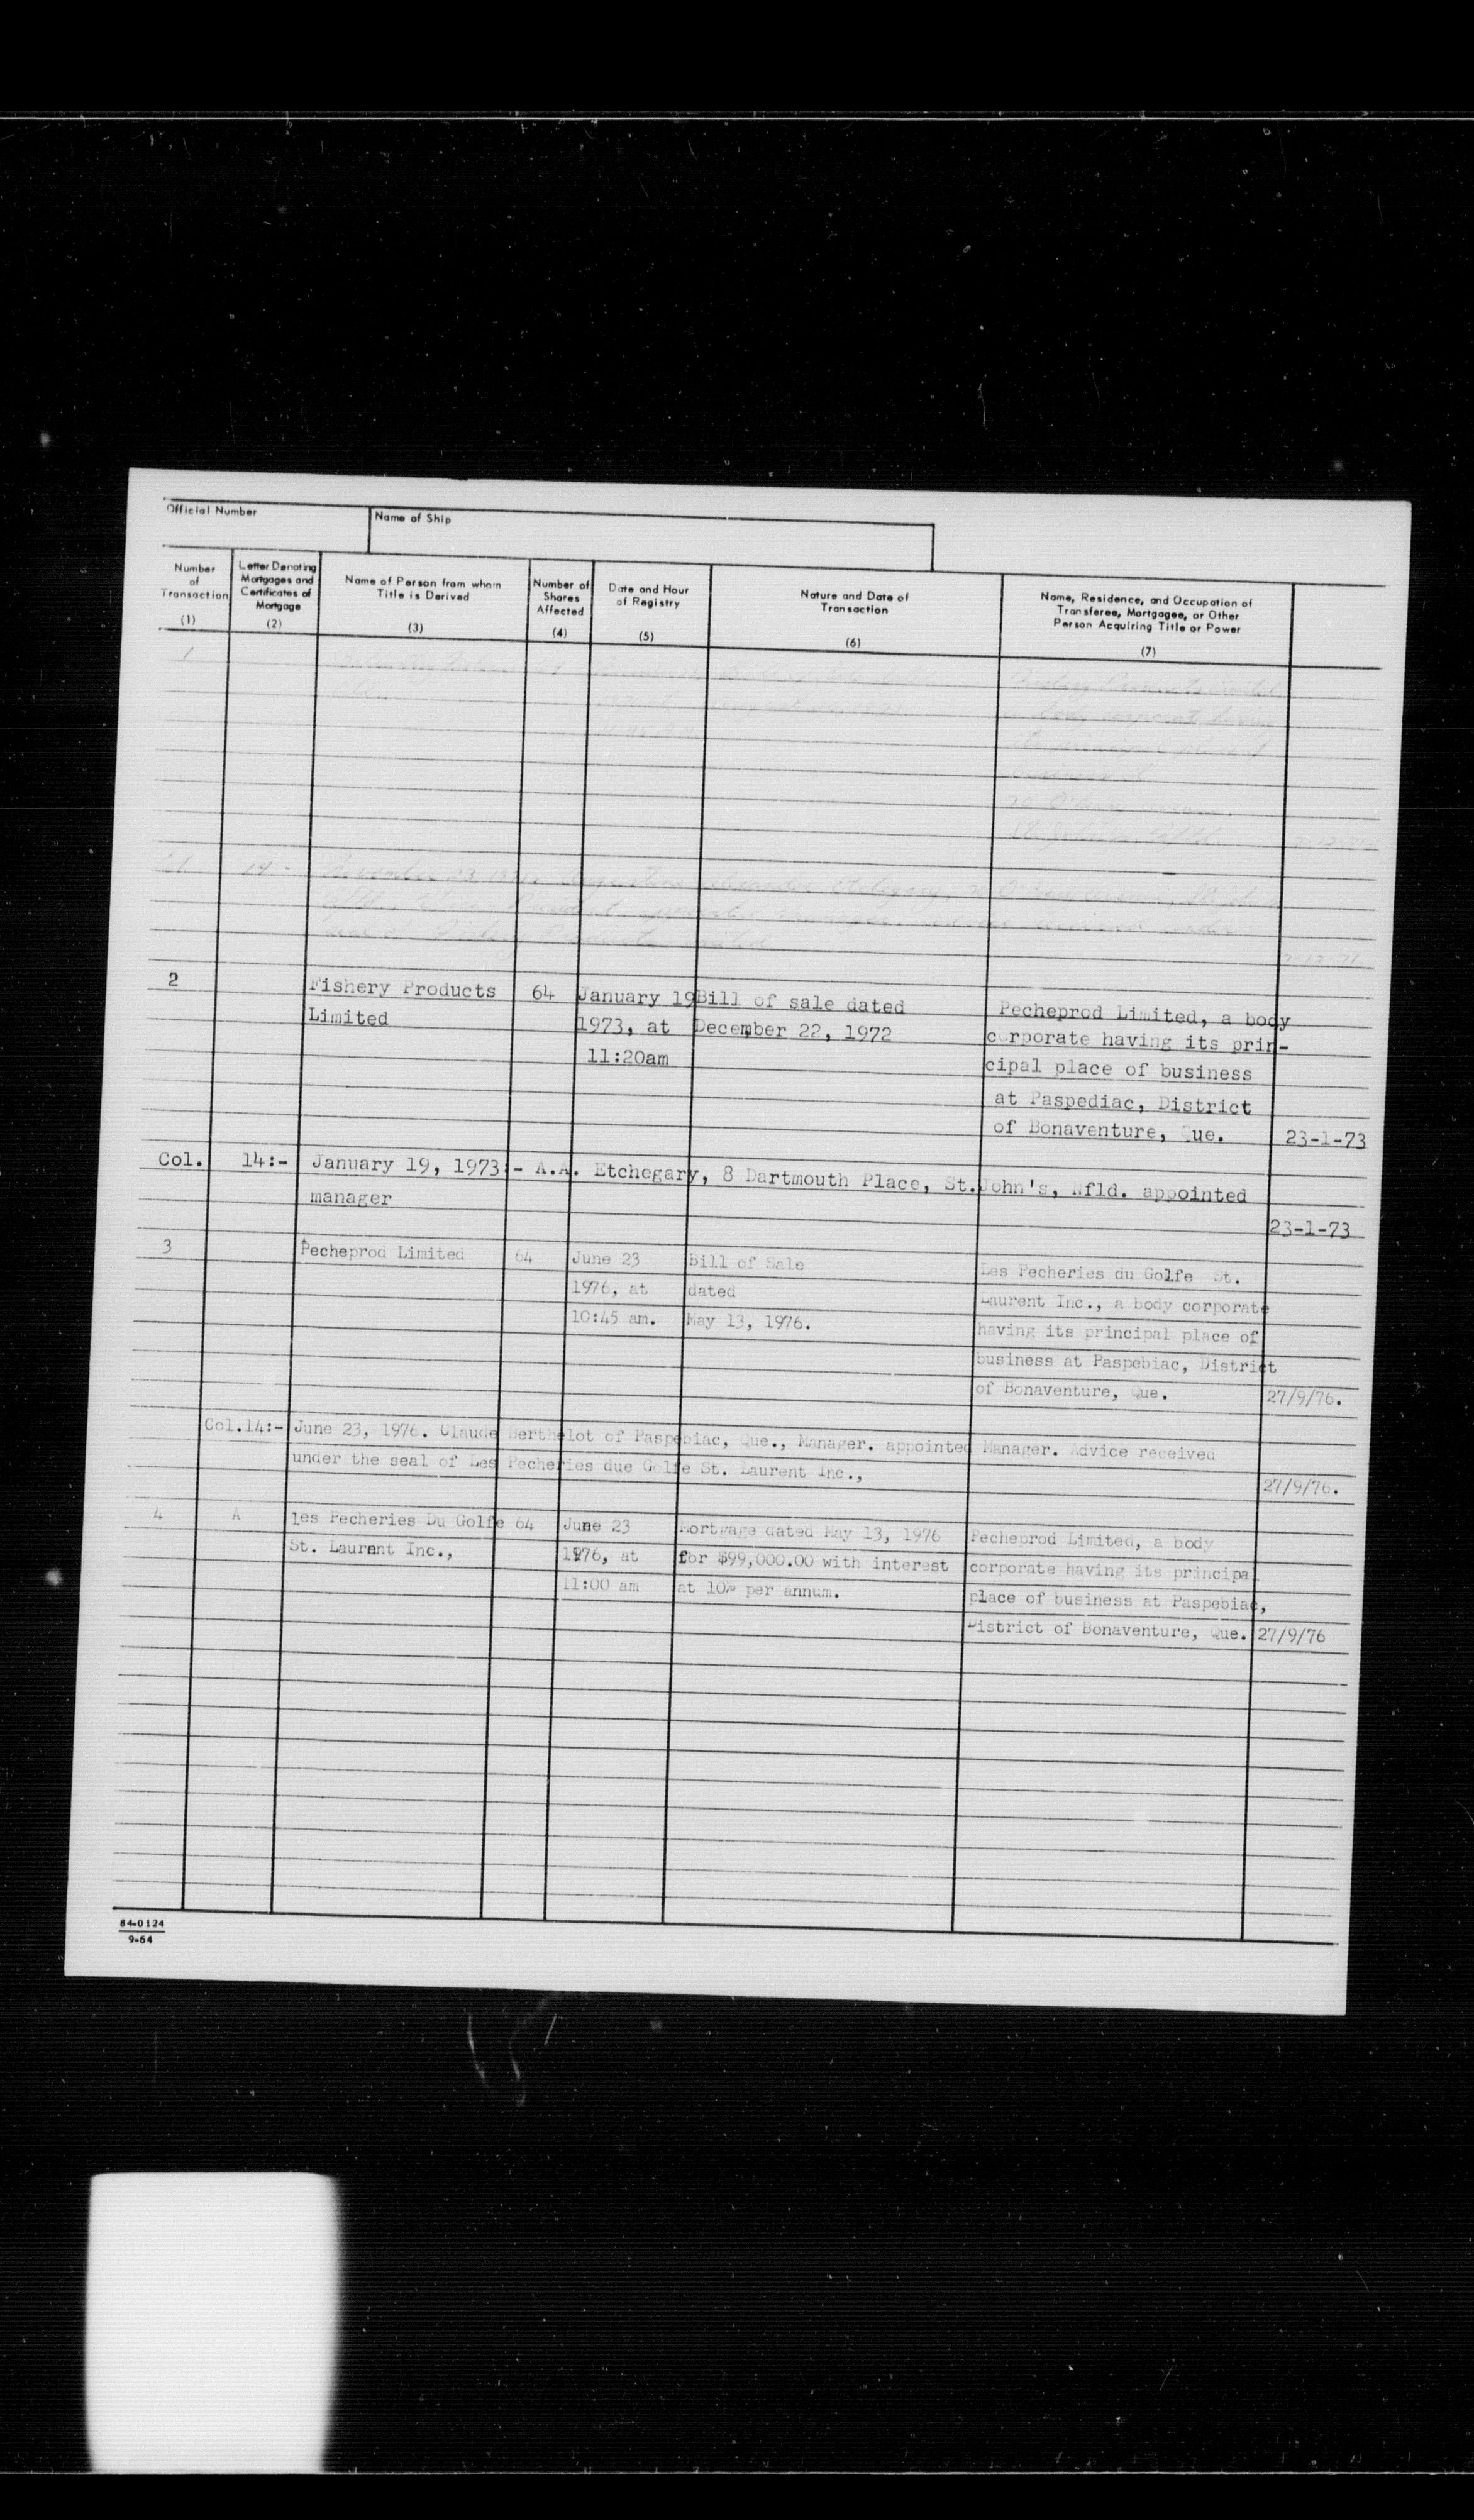 Official Number
Name of Ship
Number of Transaction (1)
Letter Denoting Mortgages and Certificates of Mortgage (2)
Name of Person from whom Title is Derived (3)
Number of Shares Affected (4)
Date and Hour of Registry (5)
Nature and Date of Transaction (6)
Name, Residence, and Occupation of Transferee, Mortgagee, or Other Person Acquiring Title or Power (7)
1
Ltd.
a body corporate having
its principal place of
business at
St. John's, Nfld.
14
November 23, 1971. Augustine Alexander Etchegary,
appointed manager.
seal of Fishery Products Limited
2 Fishery Products 64 January 19 Bill of sale dated Pecheprod Limited, a body
Limited 1973, at December 22, 1972 corporate having its prin-
11:20am cipal place of business
at Paspediac, District
of Bonaventure, Que. 23-1-73
Col. 14:- January 19, 1973:- A.A. Etchegary, 8 Dartmouth Place, St.John's, Nfld. appointed
manager
23-1-73
3 Pecheprod Limited 64 June 23 Bill of Sale Les Pecheries du Golfe St.
1976, at dated Laurent Inc., a body corporate
10:45 am. May 13, 1976. having its principal place of
business at Paspebiac, District
of Bonaventure, Que. 27/9/76.
Col.14:- June 23, 1976. Claude Berthelot of Paspebiac, Que., Manager. appointed Manager. Advice received
under the seal of Les Pecheries due Golfe St. Laurent Inc.,
27/9/76.
4 A les Pecheries Du Golfe 64 June 23 Mortgage dated May 13, 1976 Pecheprod Limited, a body
St. Laurant Inc., 1976, at for $99,000.00 with interest corporate having its principal
11:00 am at 10% per annum. place of business at Paspebiac,
District of Bonaventure, Que. 27/9/76
84-0124
9-64